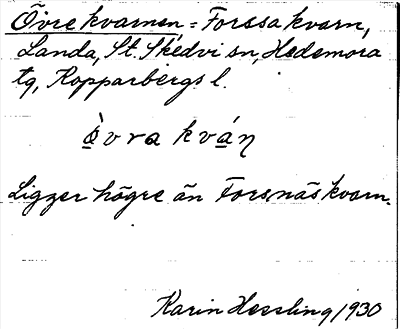 Övre kvarnen = Forssa kvarn,
Landa, St. Skedvi sn, Hedemora
tg, Kopparbergs l.
ò̱vra kvá̱ƞ
Ligger högre än Forsnäs kvarn.
Karin Hessling 1930